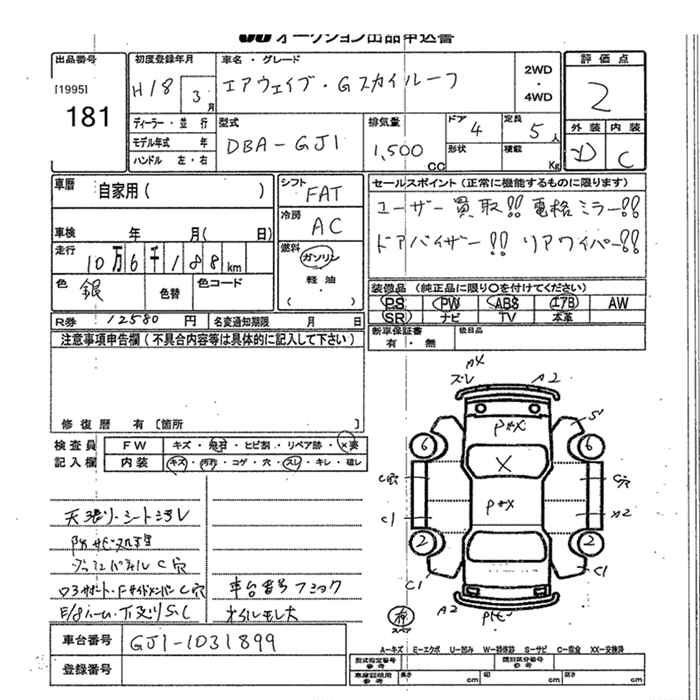 オークション出品申込書
出品番号
[1995]
181
初度登録年月
H18 3月
車名・グレード
エアウェイブ・Gスカイルーフ
2WD
・
4WD
評価点
2
外装 内装
D C
ディーラー・並行
モデル年式 年
ハンドル 左・右
型式
DBA-GJ1
排気量
1,500 cc
ドア 4
形状
定員 5人
積載 Kg
車歴 自家用( )
車検 年 月( 日)
走行
10万6千188km
色 銀
色替
色コード
シフト
FAT
冷房
AC
燃料
ガソリン
軽油
( )
セールスポイント(正常に機能するものに限ります)
ユーザー買取!! 電格ミラー!!
ドアバイザー!! リアワイパー!!
装備品(純正品に限り○を付けてください)
PS PW ABS エアB AW
SR ナビ TV 本革
新車保証書
有・無
後日品
R券 12580円 名変通知期限 月 日
注意事項申告欄(不具合内容等は具体的に記入して下さい)
修復歴 有[箇所 ]
検査員
記入欄
FW キズ・飛石・ヒビ割・リペア跡・×要
内装 キズ・汚れ・コゲ・穴・スレ・キレ・破レ
天張り・シート汚レ
車台番号フショク
オイルモレ大
ズレ
A2
P*X
S
6 6
X
C穴 C穴
P*X
C1 A2
2 2
C1 C1
A2
スペア
A-キズ E-エクボ U-凹み W-補修跡 S-サビ C-腐食 XX-交換跡
車台番号 GJ1-1031899
登録番号
型式指定番号
参考
類別区分番号
参考
車庫証明用
参考
長さ cm 幅 cm 高さ cm